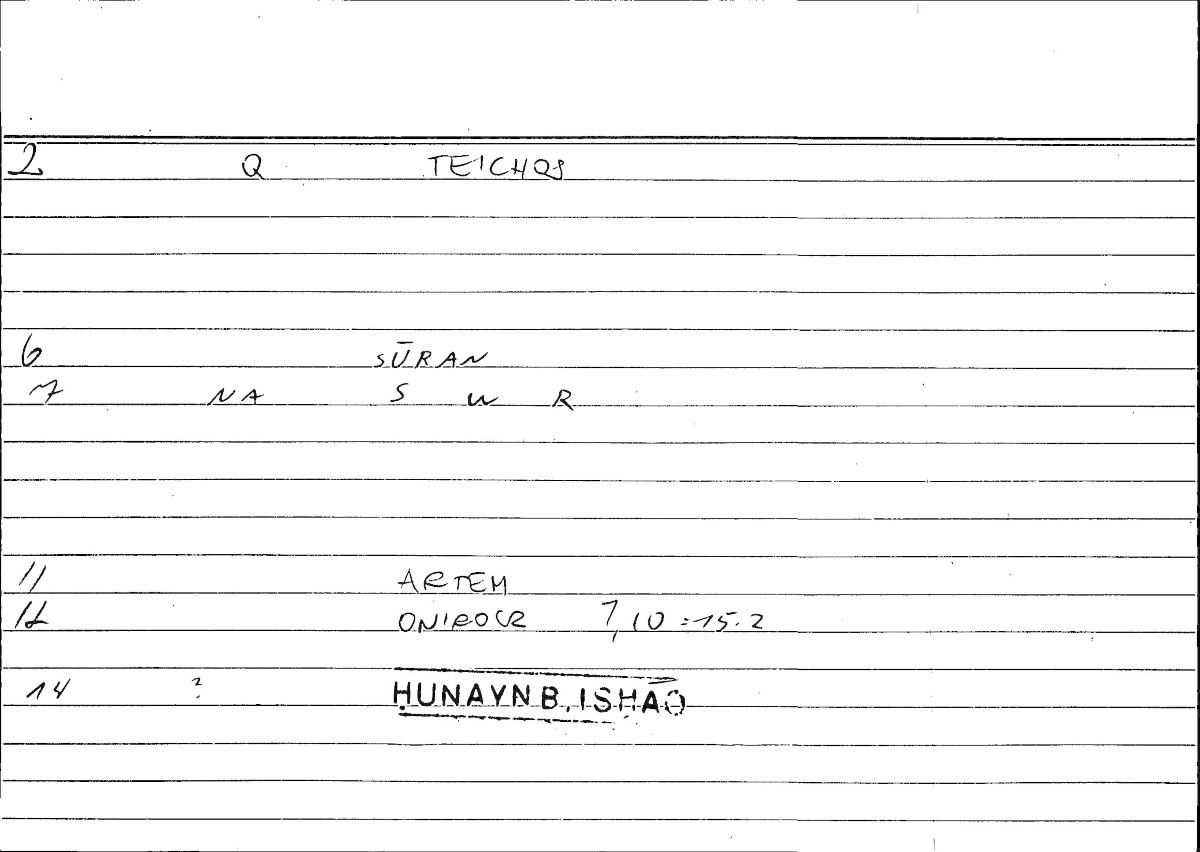 2 Q TEICHOS
6 SŪRAN
7 NA S W R
11 ARTEM
12 ONIROCR 1,10 =15.2
14 ? ḤUNAYN B. ISḤĀQ